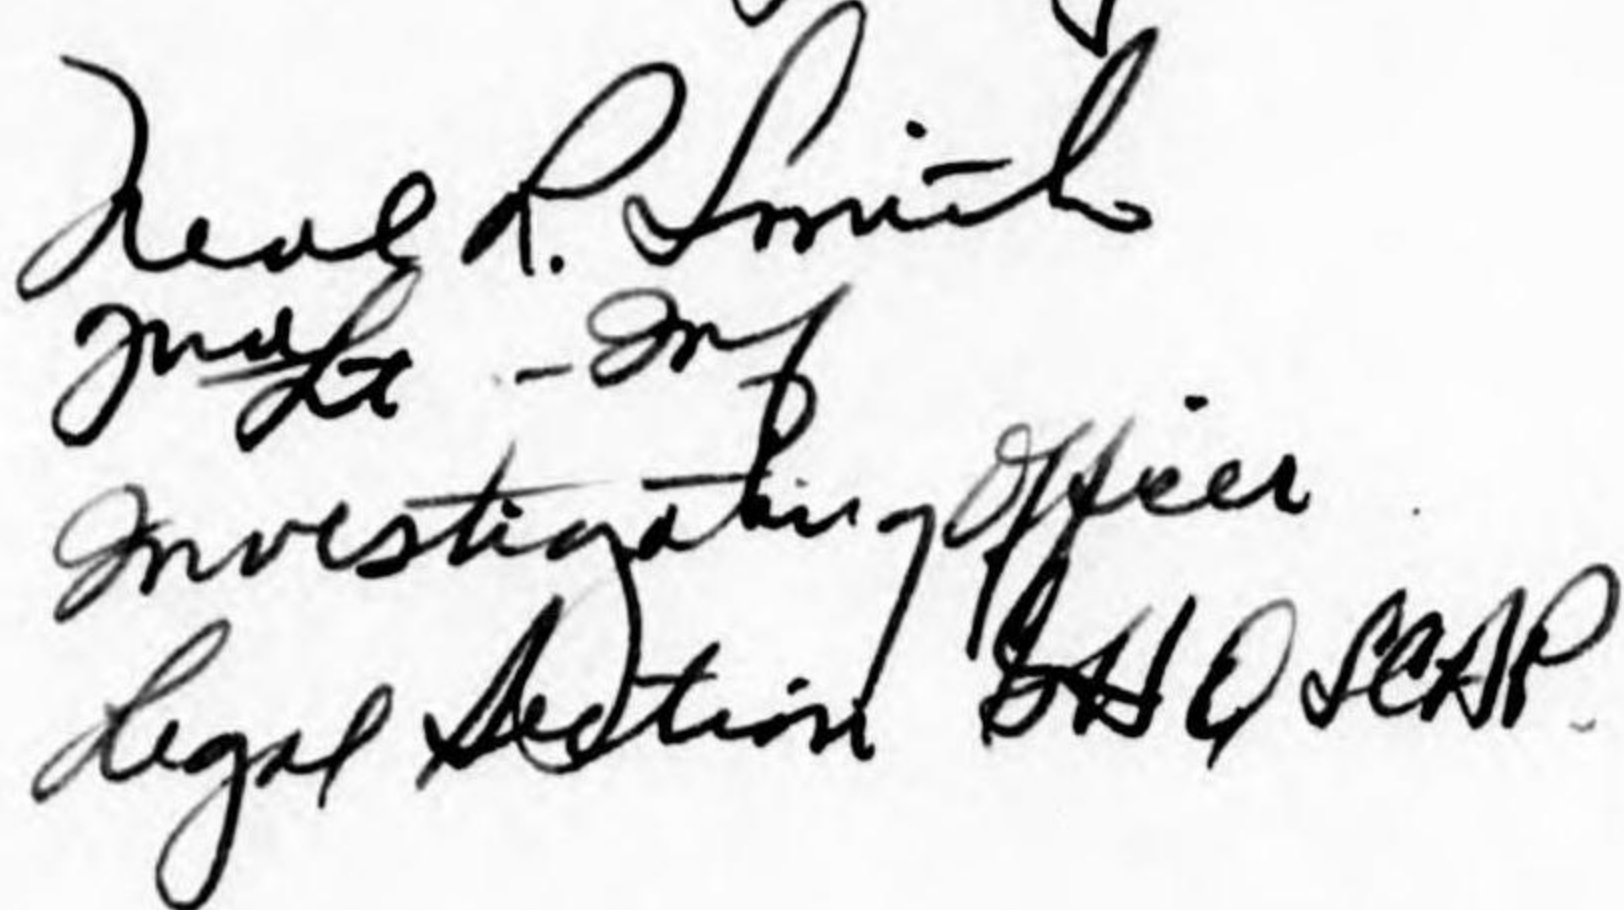 Neal R. Smith
2nd Lt - Inf
Investigating Officer
Legal Section GHQ SCAP.